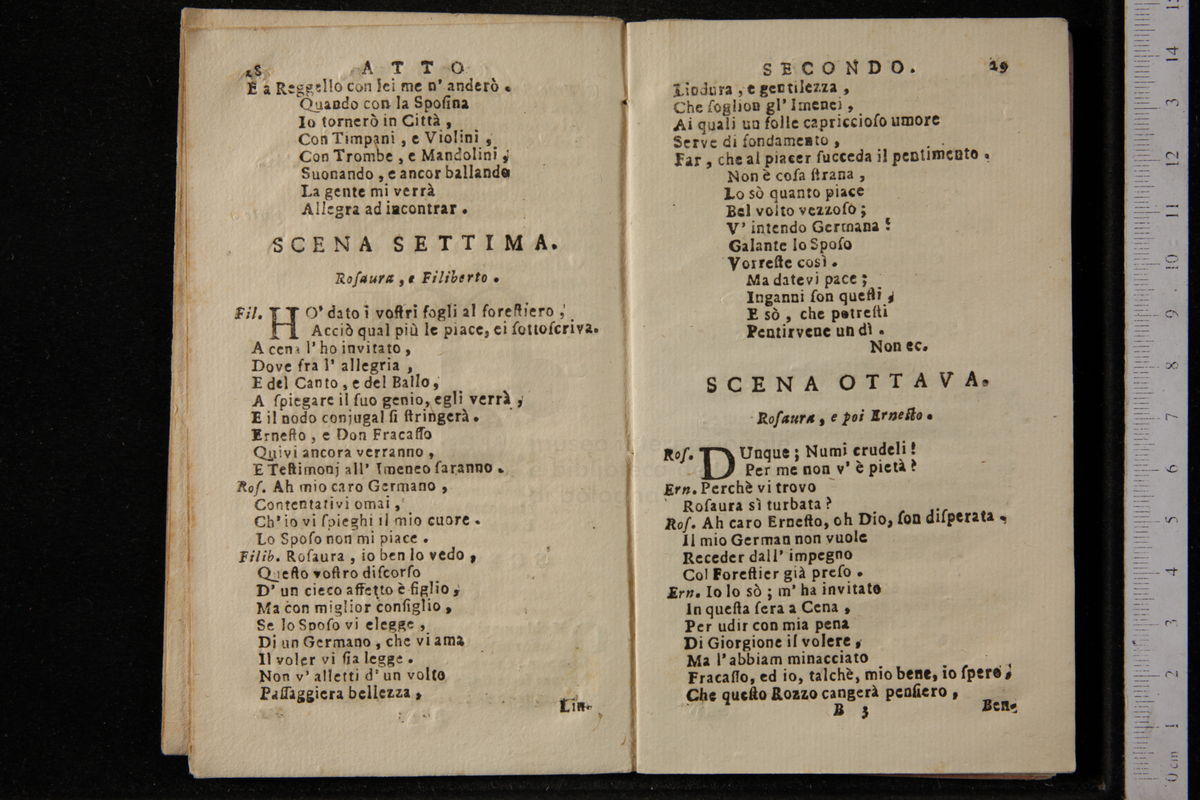 28 ATTO
E a Reggello con lei me n' anderò.
Quando con la Spoſina
Io tornerò in Città,
Con Timpani, e Violini,
Con Trombe, e Mandolini,
Suonando, e ancor ballando
La gente mi verrà
Allegra ad incontrar.
SCENA SETTIMA.
Roſaura, e Filiberto.
Fil. HO' dato i voſtri fogli al foreſtiero,
Acciò qual più le piace, ei ſottoſcriva.
A cena l' ho invitato,
Dove fra l' allegria,
E del Canto, e del Ballo,
A ſpiegare il ſuo genio, egli verrà,
E il nodo conjugal ſi ſtringerà.
Erneſto, e Don Fracaſſo
Quivi ancora verranno,
E Teſtimonj all' Imeneo ſaranno.
Roſ. Ah mio caro Germano,
Contentativi omai,
Ch' io vi ſpieghi il mio cuore.
Lo Spoſo non mi piace.
Filib. Roſaura, io ben lo vedo,
Queſto voſtro diſcorſo
D' un cieco affetto è figlio,
Ma con miglior conſiglio,
Se lo Spoſo vi elegge,
Di un Germano, che vi ama
Il voler vi ſia legge.
Non v' alletti d' un volto
Paſſaggiera bellezza,
Lin-
SECONDO. 29
Lindura, e gentilezza,
Che ſoglion gl' Imenei,
Ai quali un folle capriccioſo umore
Serve di fondamento,
Far, che al piacer ſucceda il pentimento.
Non è coſa ſtrana,
Lo sò quanto piace
Bel volto vezzoſo;
V' intendo Germana!
Galante lo Spoſo
Vorreſte così.
Ma datevi pace;
Inganni ſon queſti,
E sò, che potreſti
Pentirvene un dì.
Non ec.
SCENA OTTAVA.
Roſaura, e poi Erneſto.
Roſ. DUnque; Numi crudeli!
Per me non v' è pietà?
Ern. Perchè vi trovo
Roſaura sì turbata?
Roſ. Ah caro Erneſto, oh Dio, ſon diſperata,
Il mio German non vuole
Receder dall' impegno
Col Foreſtier già preſo.
Ern. Io lo sò; m' ha invitato
In queſta ſera a Cena,
Per udir con mia pena
Di Giorgione il volere,
Ma l' abbiam minacciato
Fracaſſo, ed io, talchè, mio bene, io ſpero,
Che queſto Rozzo cangerà penſiero,
B 3 Ben-